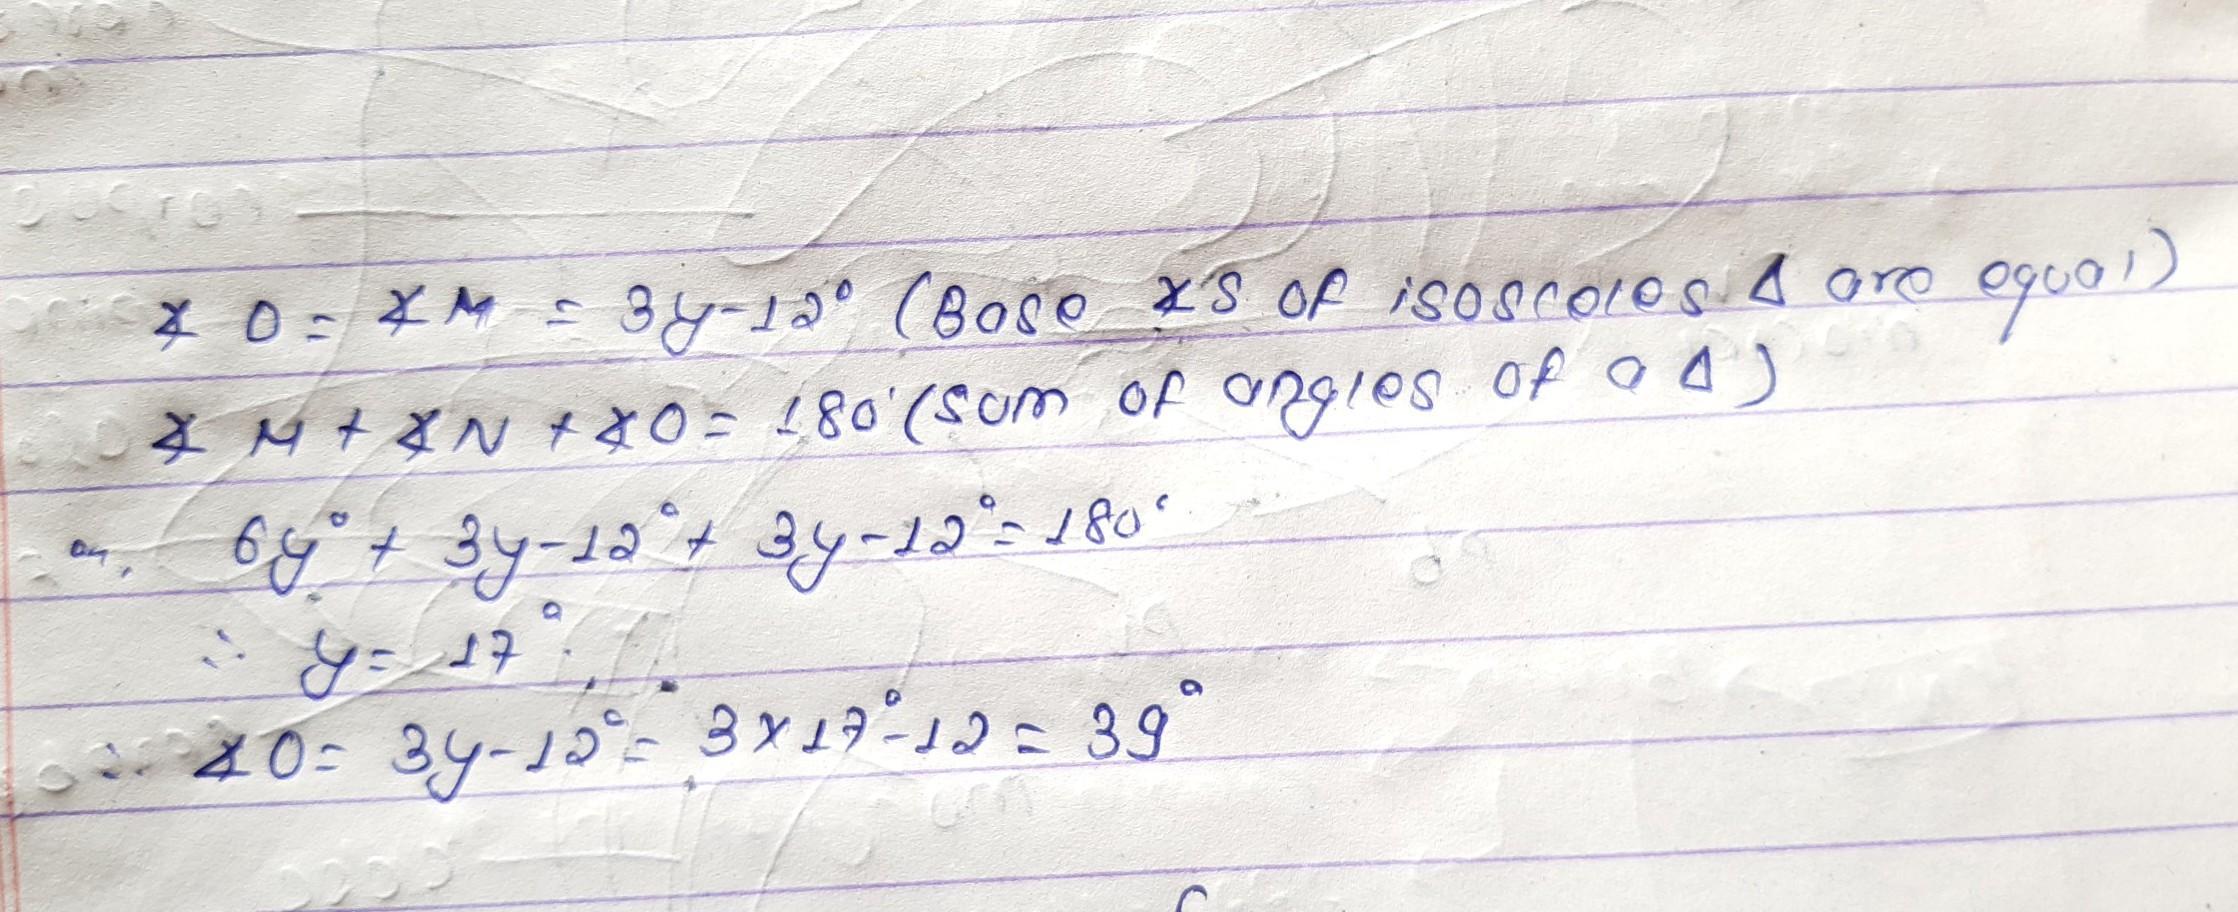 ∡ O = ∡ M = 3y-12° (Base ∡s of isosceles Δ are equal)
∡ M + ∡N + ∡O = 180° (sum of angles of a Δ)
or, 6y° + 3y-12° + 3y-12° = 180°
∴ y = 17°.
∴ ∡O = 3y-12° = 3×17°-12 = 39°